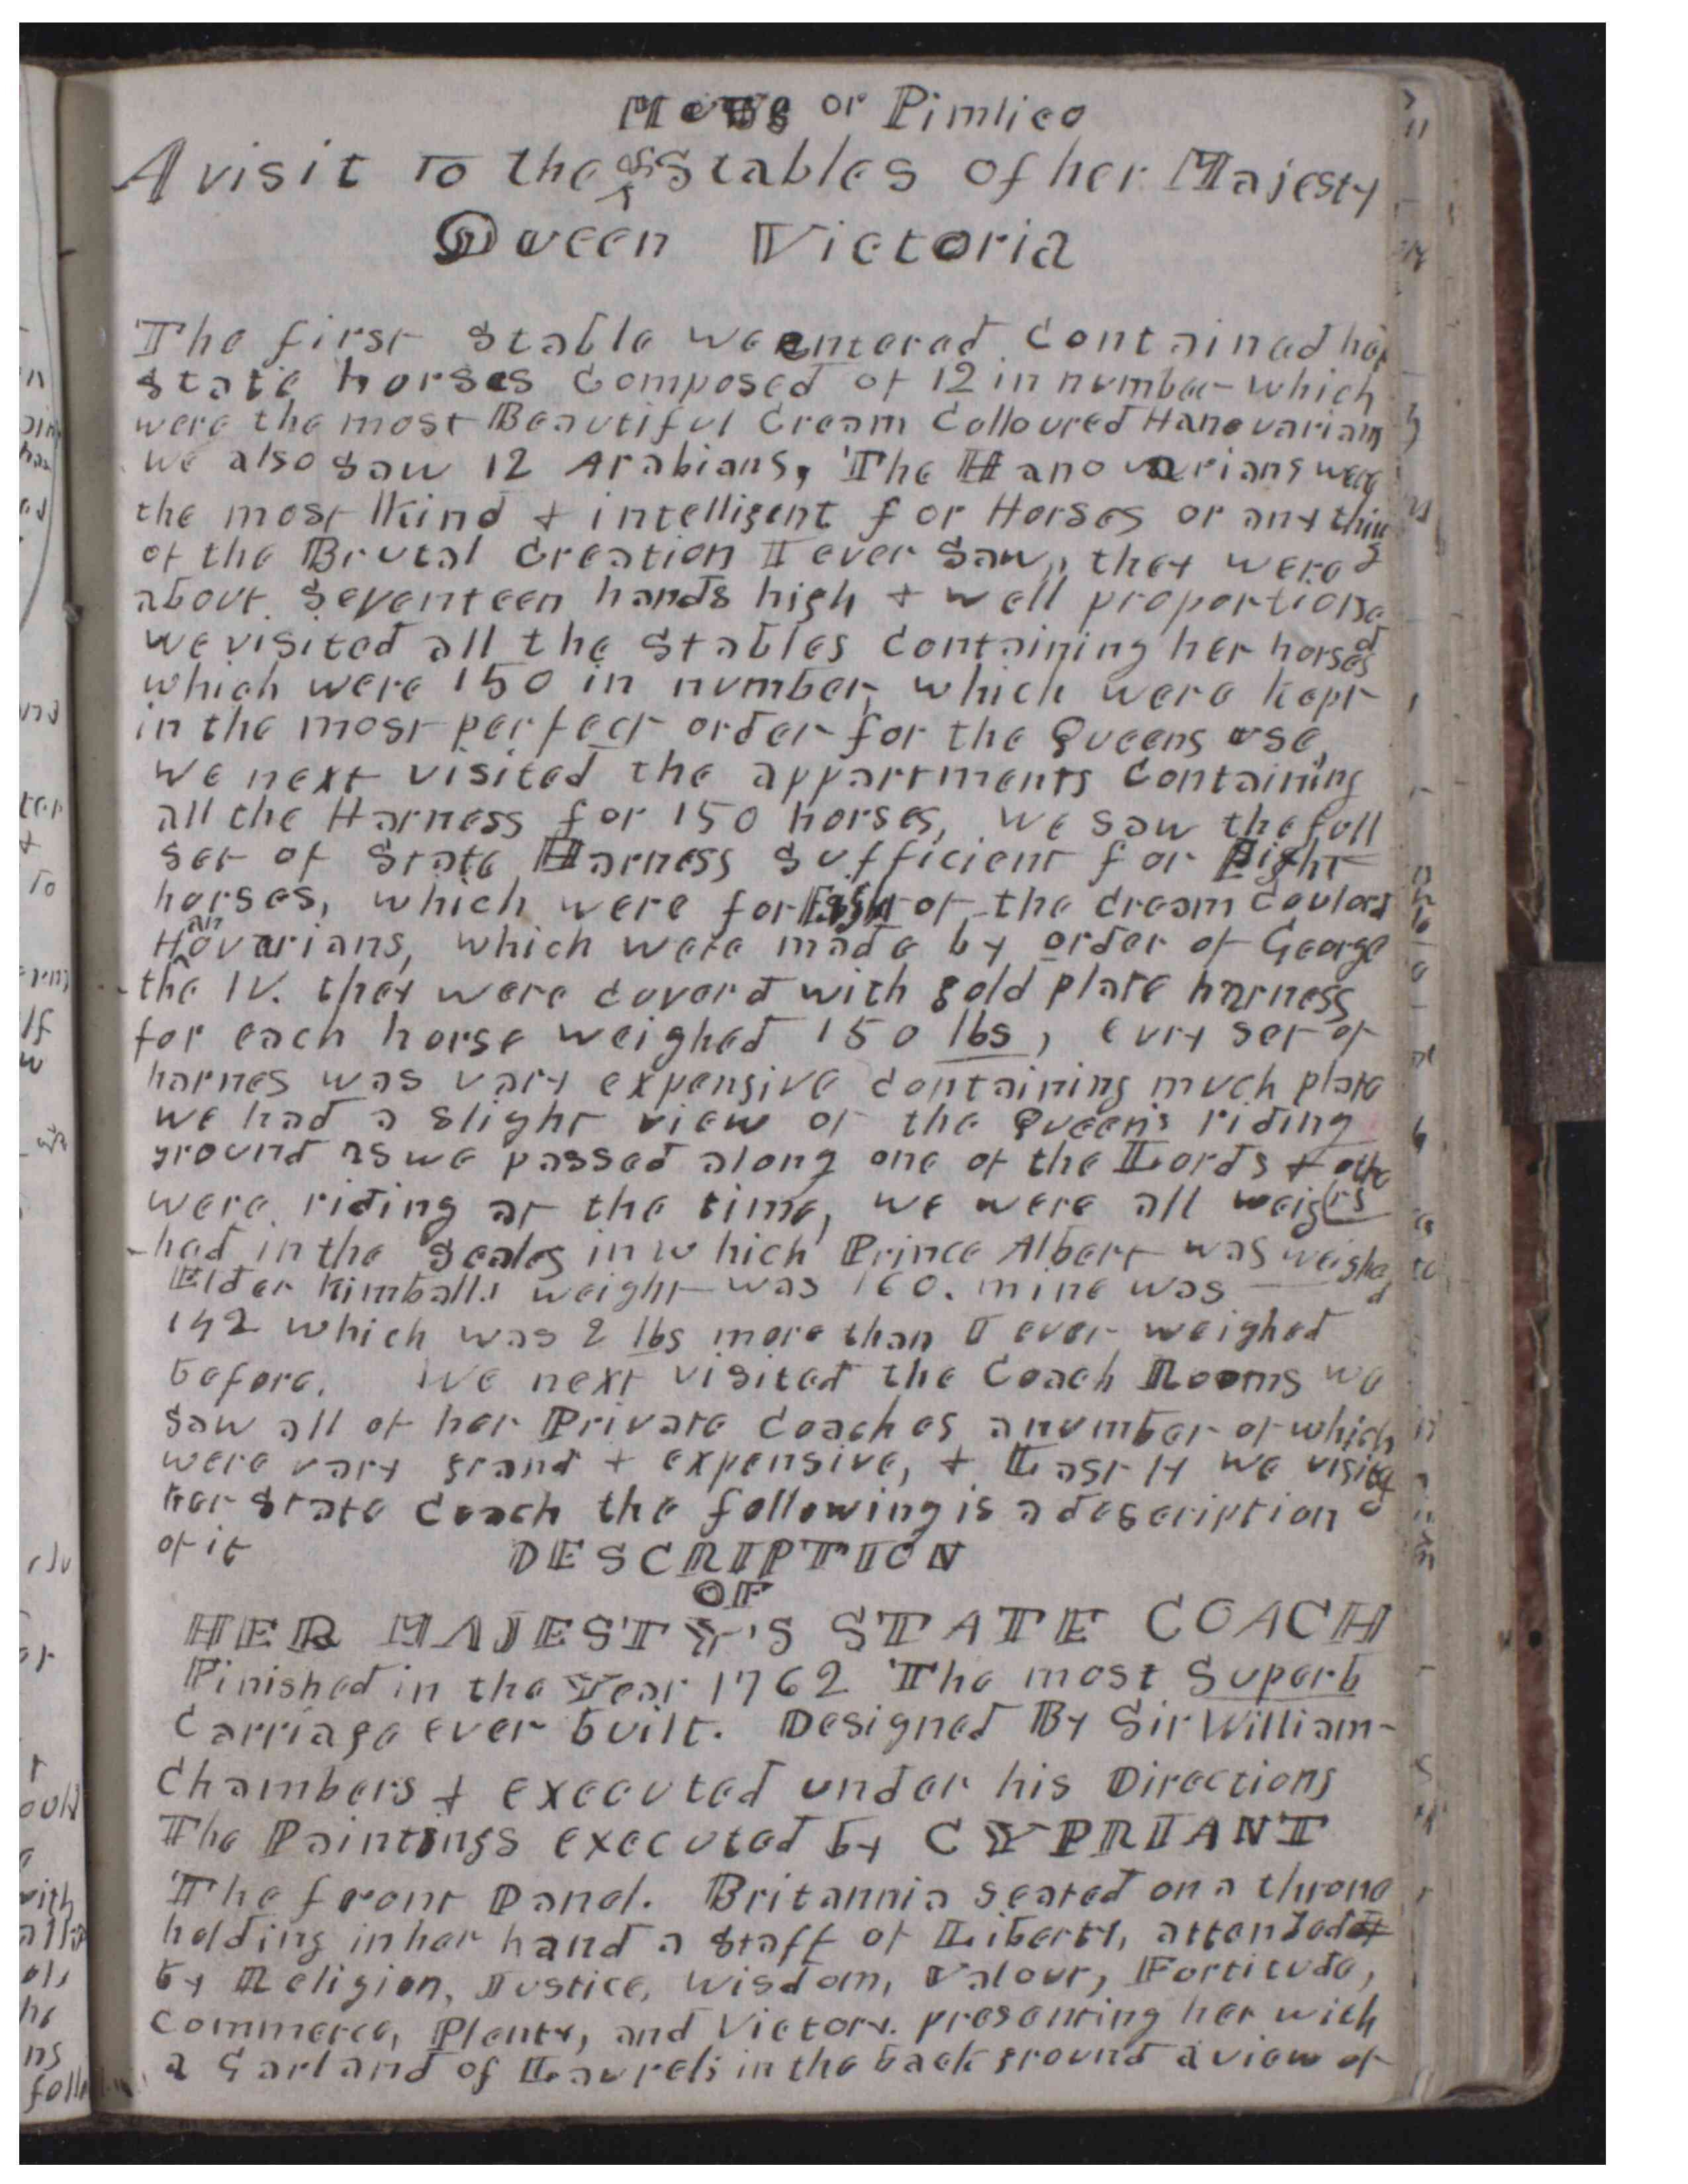 Mews or Pimlico
A visit to the Stables of her Majesty
Queen Victoria
The first Stable we entered contained her
State horses composed of 12 in number which
were the most Beautiful Cream Colloured Hanovarians
we also saw 12 Arabians, The Hanovarians were
the most Kind & intelligent for Horses or any thing
of the Brutal Creation I ever saw, they were
about seventeen hands high & well proportioned
we visited all the stables containing her horses
which were 150 in number, which were kept
in the most perfect order for the Queens use,
We next visited the appartments containing
all the Harness for 150 horses, we saw the full
set of State Harness sufficient for Eight
horses, which were for Eight of the cream coulord
Hanovarians, which were made by order of George
the IV. they were coverd with gold plate harness
for each horse weighed 150 lbs, evry set of
harnes was vary expensive containing much plate
we had a slight view of the Queen's riding
ground as we passed along one of the Lords & others
were riding at the time, we were all weig
-hed in the Scales in which Prince Albert was weighed
Elder Kimballs weight was 160. mine was
142 which was 2 lbs more than I ever weighed
before. We next visited the Coach Rooms we
saw all of her Private coaches a number of which
were vary grand & expensive, & Lastly we visited
her State Coach the following is a description
of it DESCRIPTION
OF
HER MAJESTY'S STATE COACH
Finished in the Year 1762 The most Superb
Carriage ever built. Designed By Sir William-
Chambers & executed under his Directions
The Paintings executed by CYPRIANI
The front Panel. Britannia seated on a throne
holding in her hand a Staff of Liberty, attended
by Religion, Justice, Wisdom, Valour, Fortitude,
Commerce, Plenty, and Victory. presenting her with
a Garland of Laurels in the back ground a view of